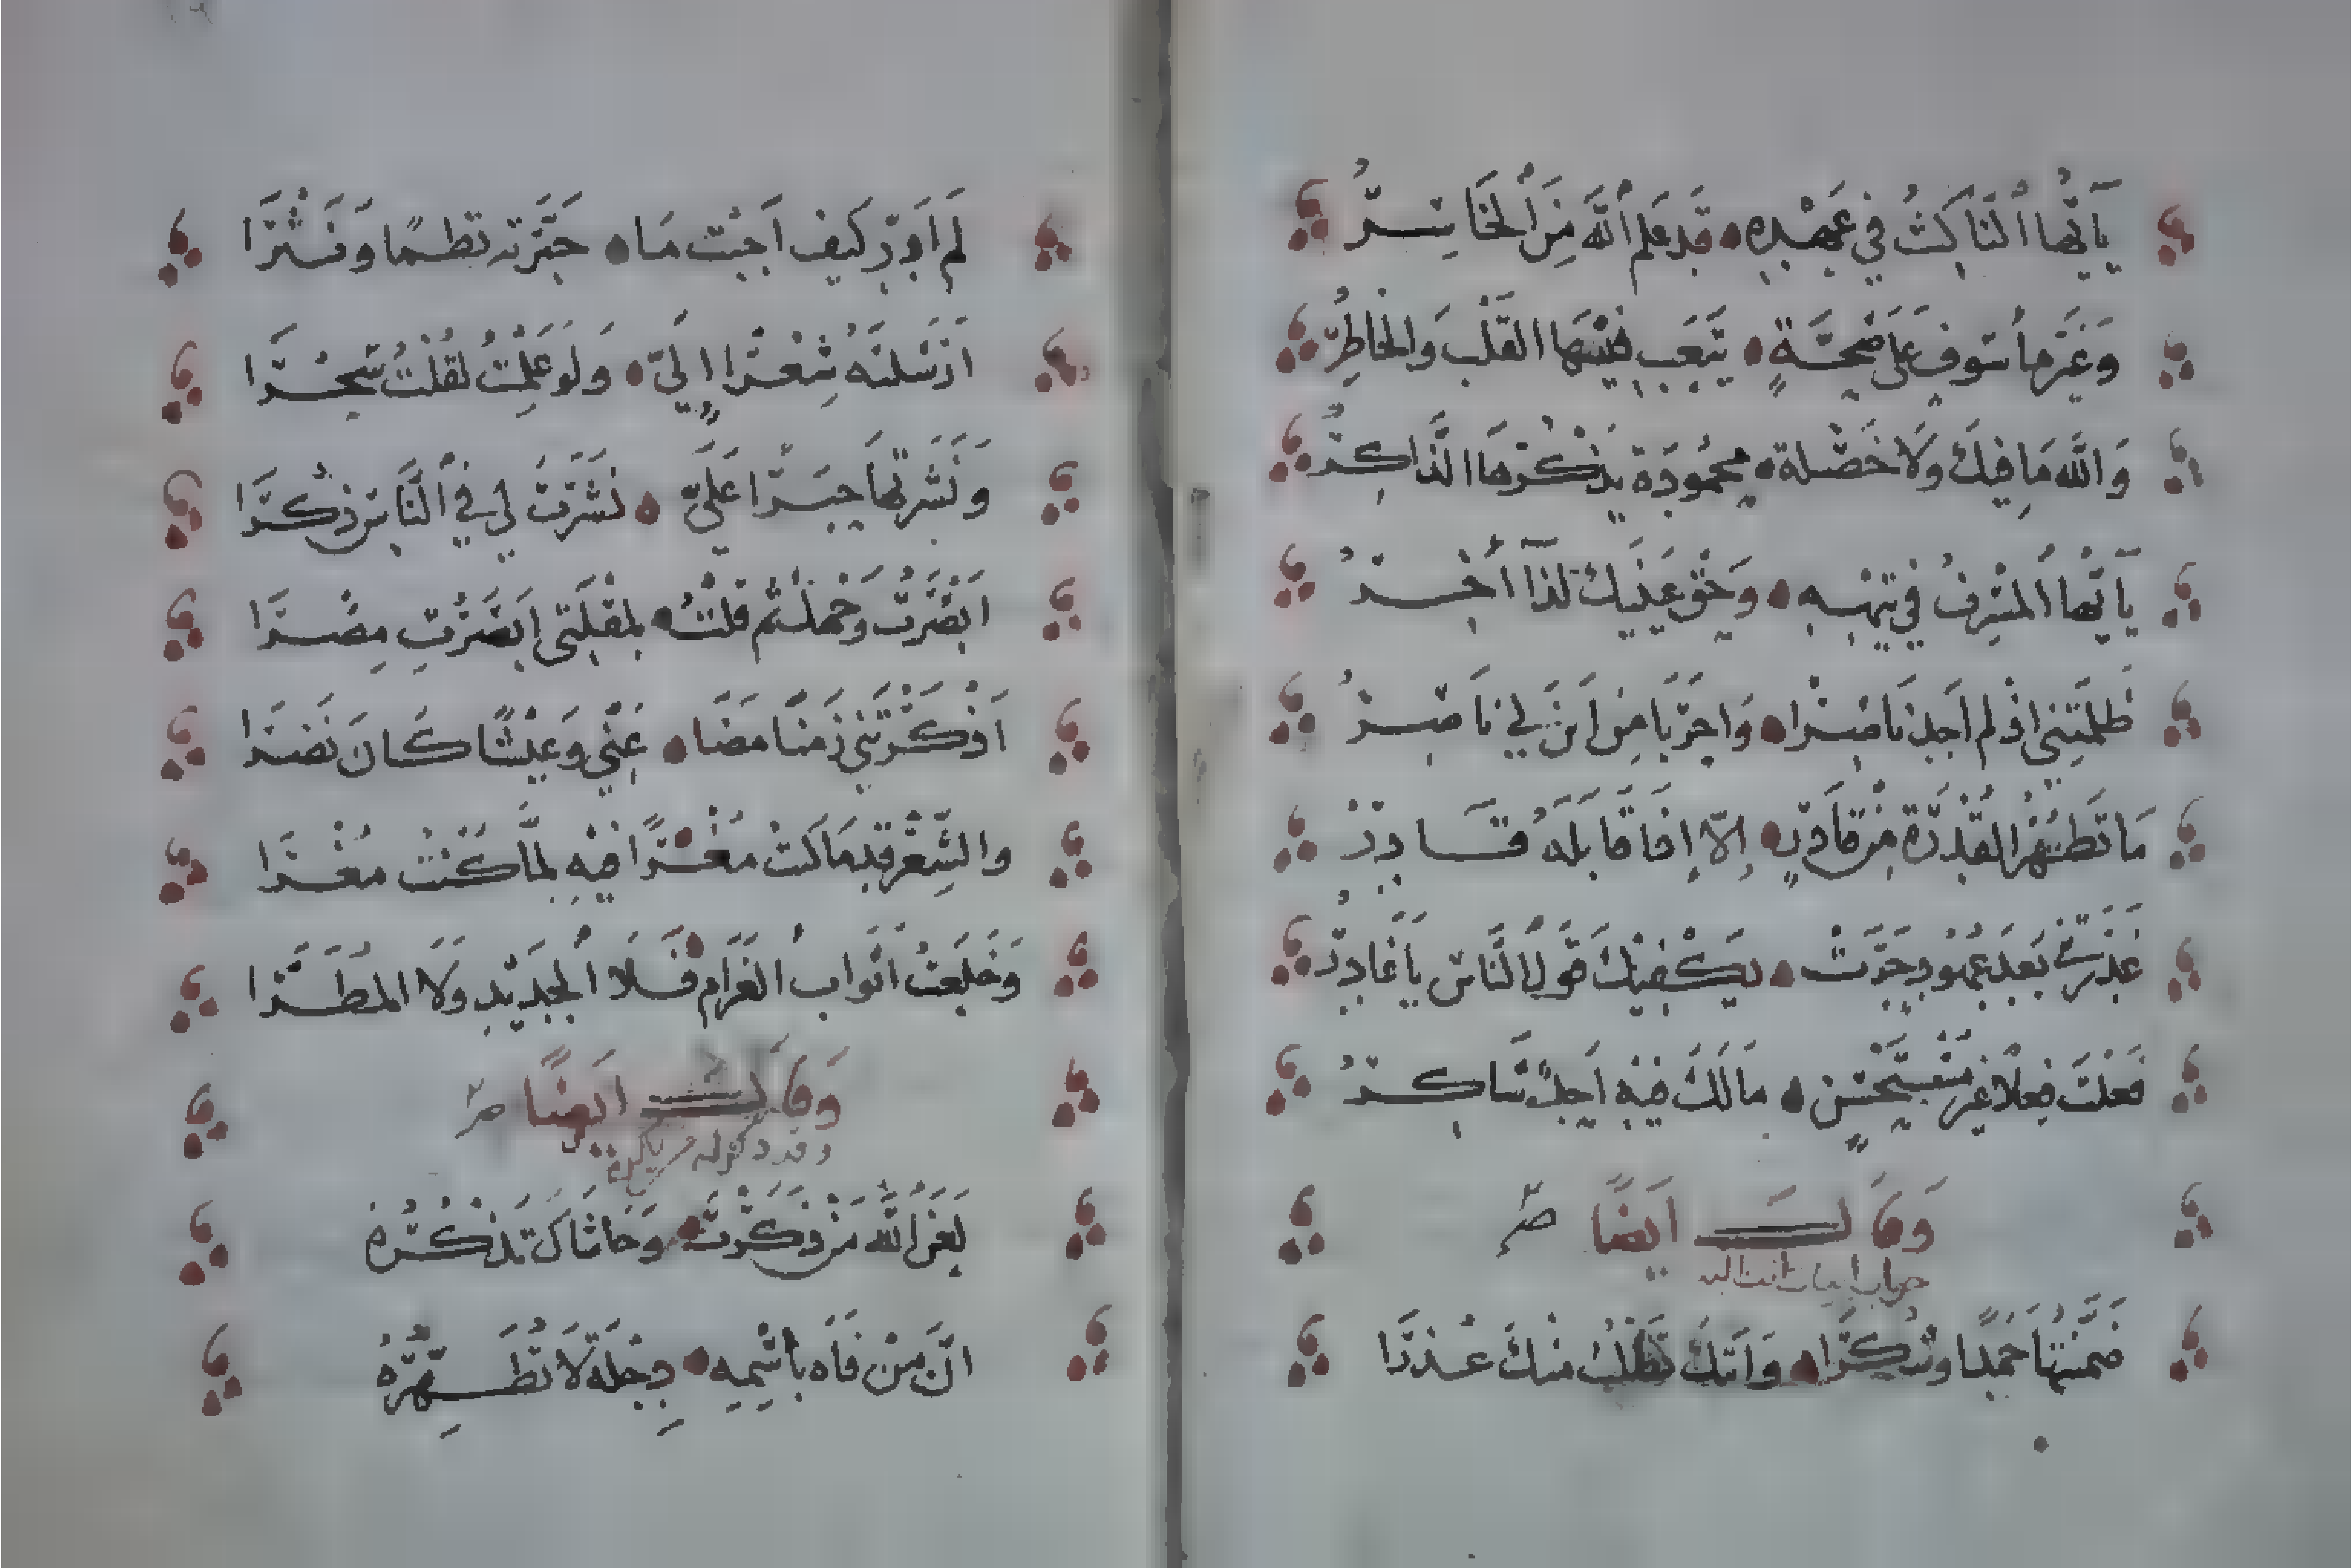 يَآ أَيُّهَا النَّاكِثُ فِي عَهْدِهِ قَدْ عَلِمَ اللَّهُ مَنِ الْخَاسِرُ
وَغَيْرَ مَأْسُوفٍ عَلَى صُحْبَةٍ يَتْعَبُ فِيهَا الْقَلْبُ وَالْخَاطِرُ
وَاللَّهِ مَا فِيكَ وَلَا خَصْلَة مَحْمُودَة يَذْكُرُهَا الذَّاكِرُ
يَآ أَيُّهَا الْمُسْرِفُ فِي تِيهِهِ وَحَقِّ عَيْنَيْكَ لِذَا آخِرُ
ظَلَمْتَنِي اذْ لَمْ أَجِدْ نَاصِرًا وَاحَرَبَا مِنْ أَيْنَ لِي نَاصِرُ
مَا تَظْهَرُ الْقُدْرَة مِنْ قَادِرٍ إِلَّا إِذَا قَابَلَهُ قَادِرُ
غَدَرْتَ بِي بَعْدَ عُهُودٍ جَرَتْ يَكْفِيكَ قَوْلُ النَّاسِ يَا غَادِرُ
فَعَلْتَ فِعْلًا غَيْرَ مُسْتَحْسَنٍ مَا لَكَ فِيهِ أَحَدٌ شَاكِرُ
وَقَالَ أَيْضًا
جواب ابيات اتت اليه
ضَمَّنْتُهَا حَمْدًا وَشُكْرَا وَأَتَتْكَ تَطْلُبُ مِنْكَ عُذْرَا
لَمْ أَدْرِ كَيْفَ أُجِيبُ مَا حَبَّرْتَهُ نَظْمًا وَنَثْرَا
أَرْسَلْتَهُ شِعْرًا إِلَيَّ وَلَوْ عَلِمْتُ لَقُلْتُ سِحْرَا
وَنَشَرْتَهَا حِبَرًا عَلَيَّ نَشَرْتَ لِي فِي النَّاسِ ذِكْرَا
أَبْصَرْتُ وَجْهَكَ ثُمَّ قُلْتُ لِمُقْلَتِي أَبْصَرْتِ مِصْرَا
أَذْكَرْتَنِي زَمَنًا مَضَا عَنِّي وَعَيْشًا كَانَ نَضْرَا
وَالشِّعْرُ قِدْمًا كُنْتُ مُغْرًا فِيهِ لَمَّا كُنْتُ مُغْرَا
وَخَلَعْتُ أَثْوَابَ الْغَرَامِ فَلَا الْجَدِيدِ وَلَا الْمُطَرَّا
وَقَالَ أَيْضًا
وقد ذكر له من يكره
لَعَنَ اللَّهُ مَنْ ذَكَرْتَ وَحَاشَاكَ تَذْكُرُهْ
إِنَّ مَنْ فَاهَ بِاسْمِهِ دِجْلَة لَا تُطَهِّرُهْ